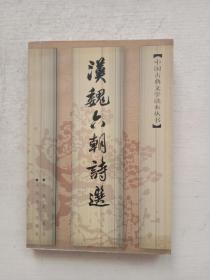 漢魏六朝詩選
【中国古典文学读本丛书】